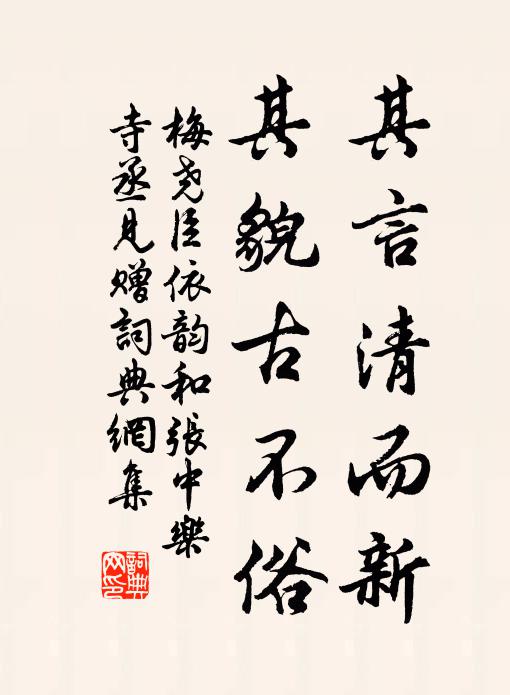 其言清而新
其貌古不俗
梅尧臣依韵和張中樂
寺丞見赠詞典網集
詞典
网印